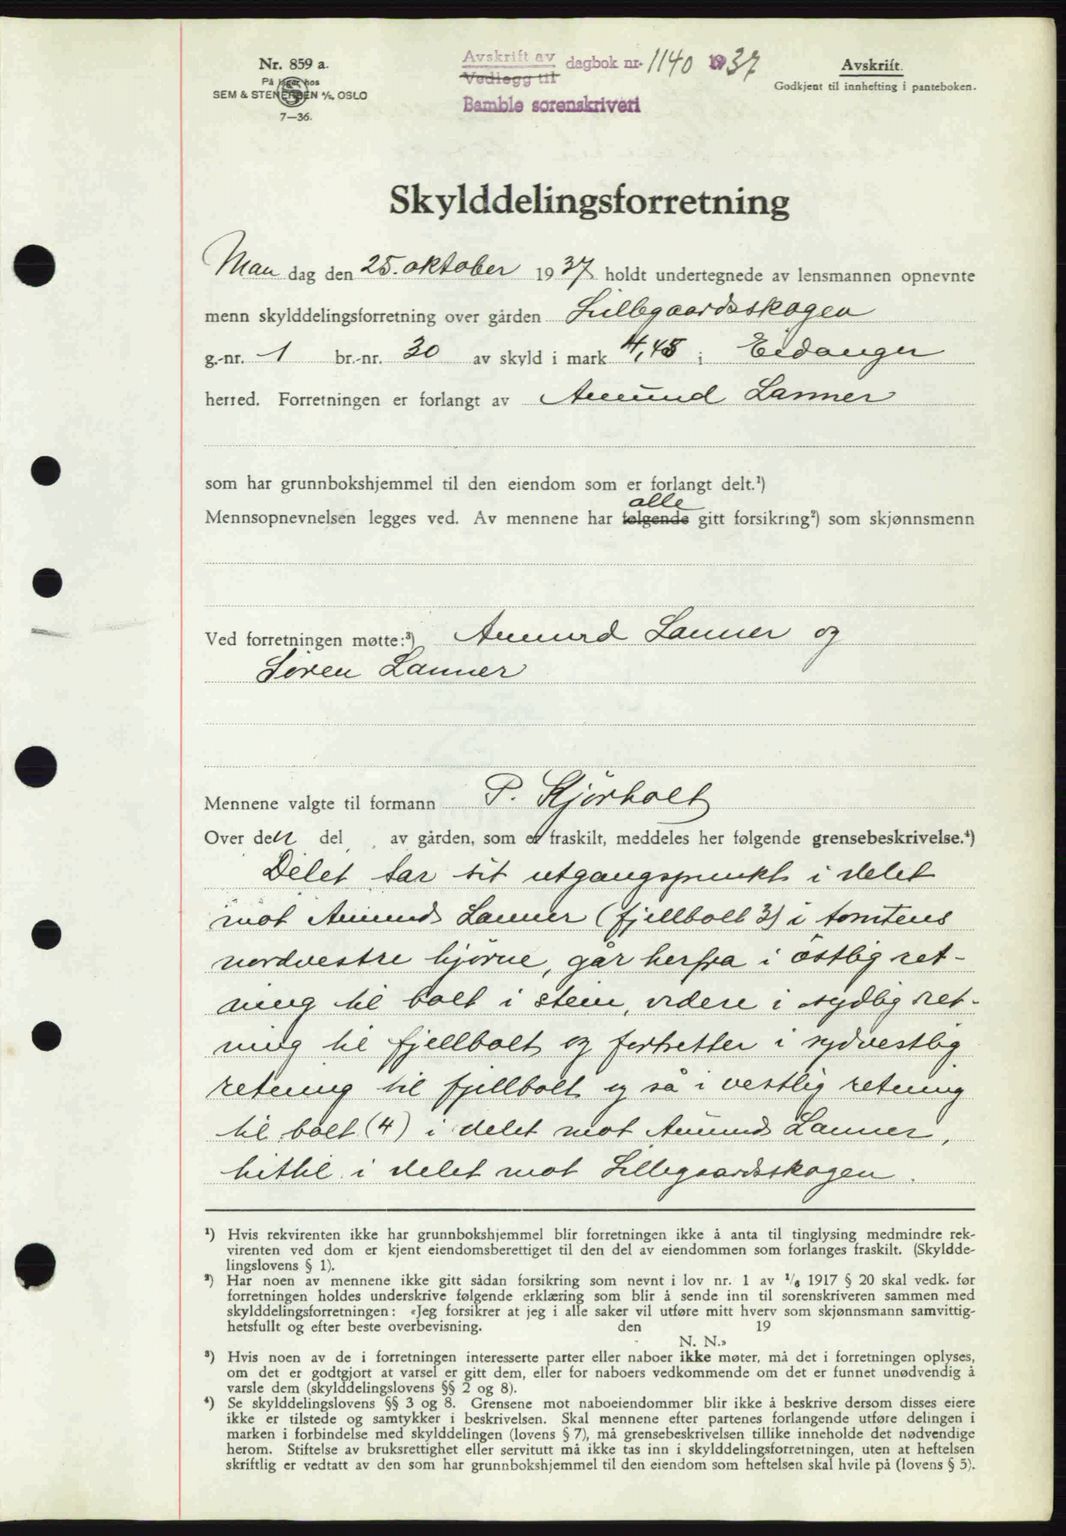 Nr. 859 a.
På lager hos
SEM & STENERSEN A/S, OSLO
7—36.
Avskrift av
Vedlegg til
dagbok nr. 1140 1937
Bamble sorenskriveri
Avskrift.
Godkjent til innhefting i panteboken.
Skylddelingsforretning
Man dag den 25. oktober 1937 holdt undertegnede av lensmannen opnevnte
menn skylddelingsforretning over gården Lillegaardsskogen
g.-nr. 1 br.-nr. 30 av skyld i mark 4,45 i Eidanger
herred. Forretningen er forlangt av Amund Lanner
som har grunnbokshjemmel til den eiendom som er forlangt delt.¹)
alle
Mennsopnevnelsen legges ved. Av mennene har følgende gitt forsikring²) som skjønnsmenn
Ved forretningen møtte:³) Amund Lanner og
Søren Lanner
Mennene valgte til formann P. Kjørholt
Over den del av gården, som er fraskilt, meddeles her følgende grensebeskrivelse.⁴)
Delet tar sit utgangspunkt i delet
mot Amund Lanner (fjellbolt 3) i tomtens
nordvestre hjørne, går herfra i östlig ret-
ning til bolt i stein, videre i sydlig ret-
ning til fjellbolt og fortsetter i sydvestlig
retning til fjellbolt og så i vestlig retning
til bolt (4) i delet mot Amund Lanner,
hittil i delet mot Lillegaardsskogen.
¹) Hvis rekvirenten ikke har grunnbokshjemmel blir forretningen ikke å anta til tinglysing medmindre rek-
virenten ved dom er kjent eiendomsberettiget til den del av eiendommen som forlanges fraskilt. (Skyldde-
lingslovens § 1).
²) Har noen av mennene ikke gitt sådan forsikring som nevnt i lov nr. 1 av 1/6 1917 § 20 skal vedk. før
forretningen holdes underskrive følgende erklæring som blir å sende inn til sorenskriveren sammen med
skylddelingsforretningen: «Jeg forsikrer at jeg i alle saker vil utføre mitt hverv som skjønnsmann samvittig-
hetsfullt og efter beste overbevisning. den 19
N. N.»
³) Hvis noen av de i forretningen interesserte parter eller naboer ikke møter, må det i forretningen oplyses,
om det er godtgjort at varsel er gitt dem, eller for naboers vedkommende om det er funnet unødvendig å
varsle dem (skylddelingslovens §§ 2 og 8).
⁴) Se skylddelingslovens §§ 3 og 8. Grensene mot naboeiendommer blir ikke å beskrive dersom disses eiere
ikke er tilstede og samtykker i beskrivelsen. Skal mennene efter partenes forlangende utføre delingen i
marken i forbindelse med skylddelingen (lovens § 7), må grensebeskrivelsen tillike inneholde det nødvendige
herom. Stiftelse av bruksrettighet eller servitutt må ikke tas inn i skylddelingsforretningen, uten at heftelsen
skriftlig er vedtatt av den som har grunnbokshjemmel til den eiendom som heftelsen skal hvile på (lovens § 5).